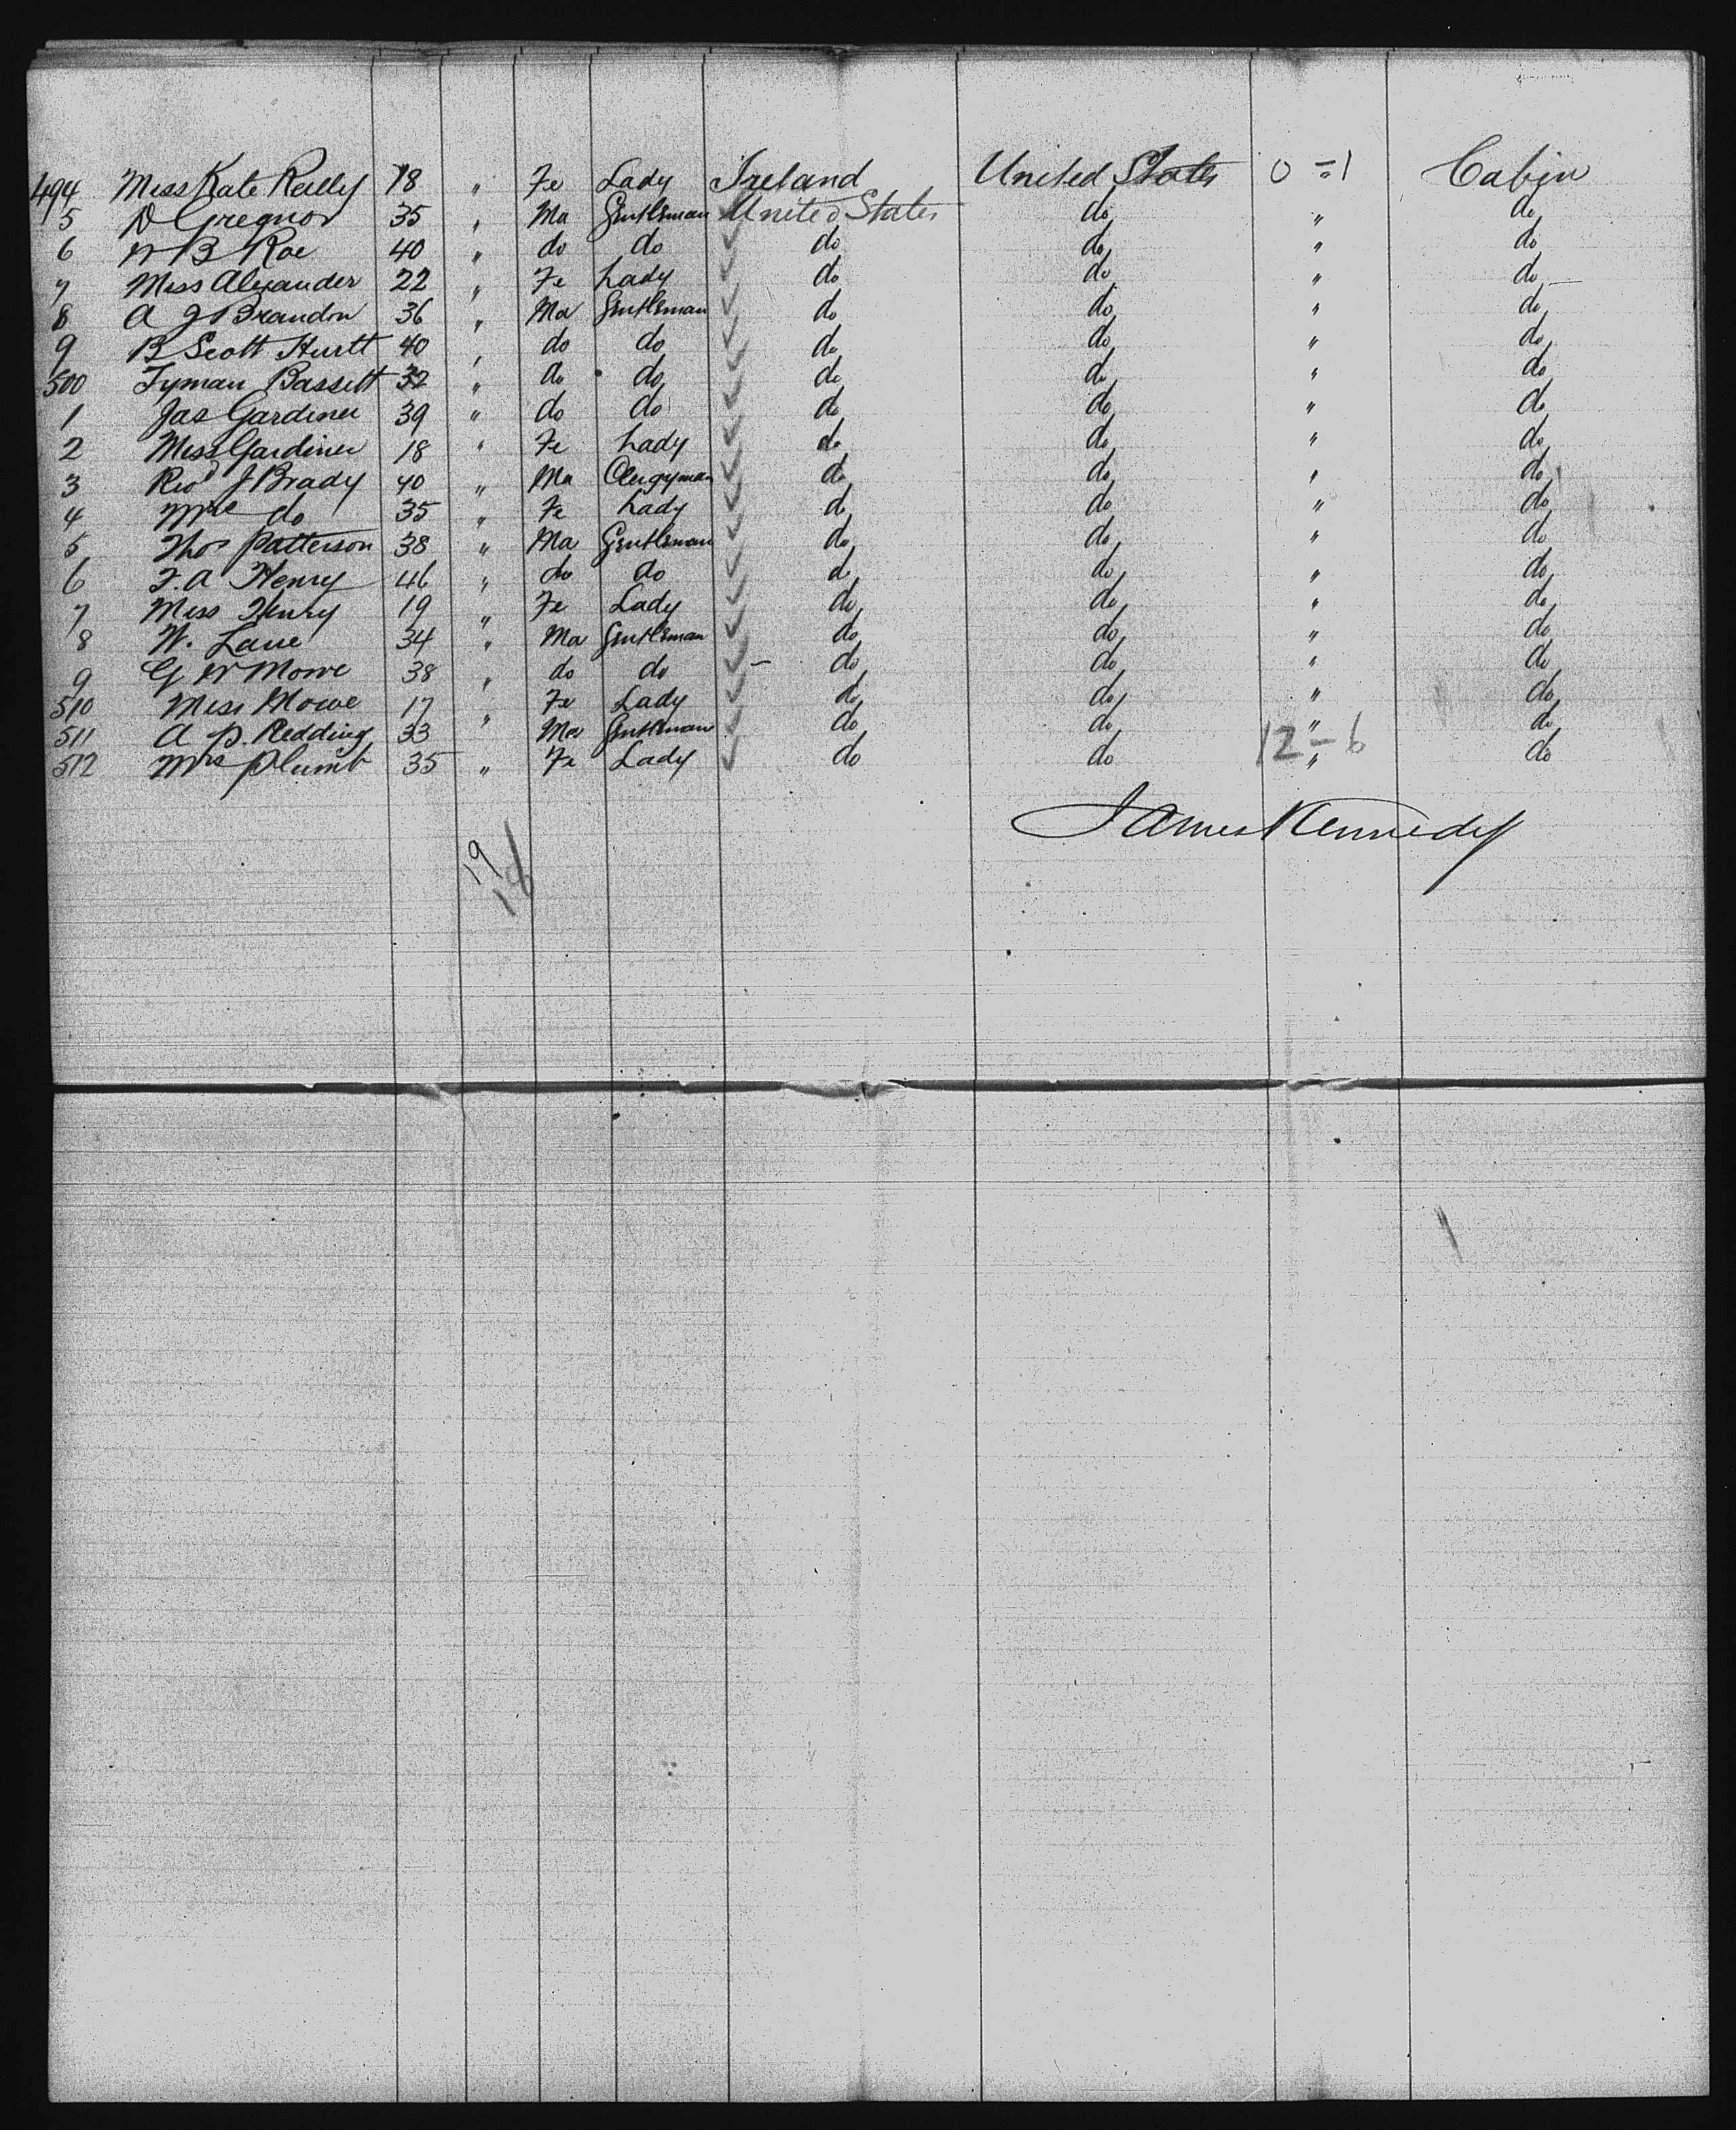 494 Miss Kate Reilly 18 " Fe Lady Ireland United States 0 = 1 Cabin
5 D Gregnor 35 " Ma Gentleman United States do " do
6 W B Roe 40 " do do do do " do
7 Miss Alexander 22 " Fe Lady do do " do
8 A J Brandon 36 " Ma Gentleman do do " do
9 B Scott Hurtt 40 " do do do do " do
500 Lyman Bassett 32 " do do do do " do
1 Jas Gardiner 39 " do do do do " do
2 Miss Gardiner 18 " Fe Lady do do " do
3 Revd J Brady 40 " Ma Clergyman do do " do
4 do 35 " Fe Lady do do " do
5 Thos Patterson 38 " Ma Gentleman do do " do
6 F. A Henry 46 " do do do do " do
7 Miss Henry 19 " Fe Lady do do " do
8 W. Lane 34 " Ma Gentleman do do " do
9 G W Mowe 38 " do do do do " do
510 Miss Mowe 17 " Fe Lady do do " do
511 A P. Redding 33 Ma Gentleman do do " do
512 Mrs Plumb 35 " Fe Lady do do " do
12 - 6
James Kennedy
19